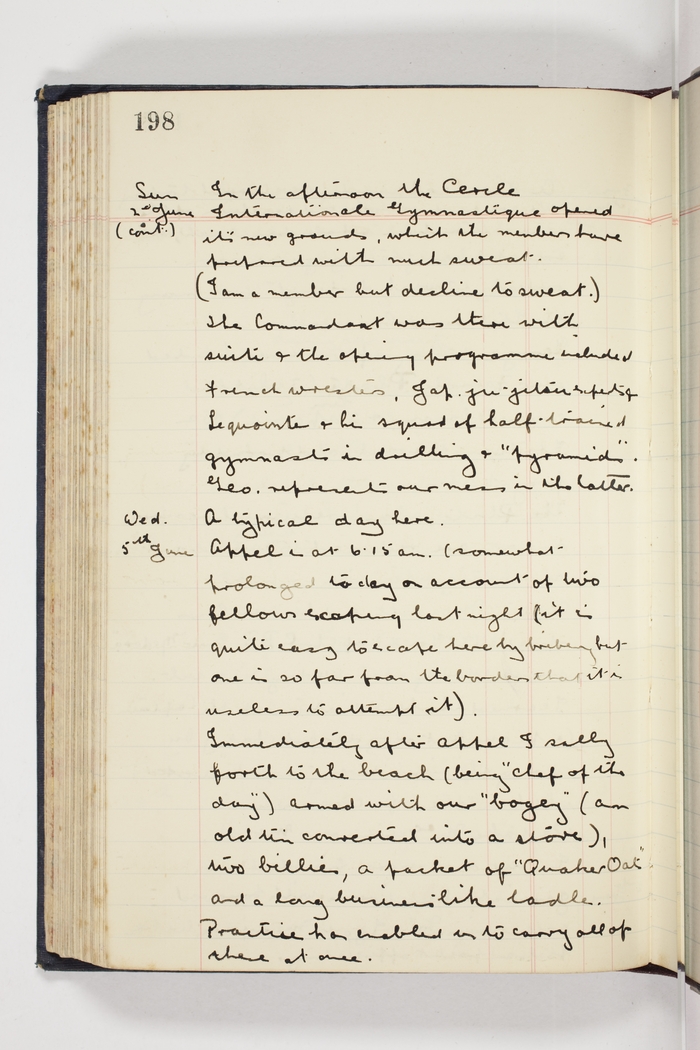 198
Sun In the afternoon the Cercle
2nd June Internationale Gymnastique opened
(cont.) it's new grounds, which the members have
prepared with much sweat.
(I am a member but decline to sweat.)
The Commandant was there with
suite & the opening programme included
French wrestlers, Jap. ju-jitsu experts &
Lequointe & his squad of half-trained
gymnasts in drilling & "pyramids".
Geo. represents our mess in the latter.
Wed. A typical day here.
5th June Appel is at 6.15 am. (somewhat
prolonged to day on account of two
fellows escaping last night (it is
quite easy to escape here by bribery but
one is so far from the borders that it is
useless to attempt it).
Immediately after appel I sally
forth to the beach (being "chef of the
day") armed with our "bogey" (an
old tin converted into a stove),
two billies, a packet of "Quaker Oats"
and a long businesslike ladle.
Practise has enabled us to carry all of
these at once.